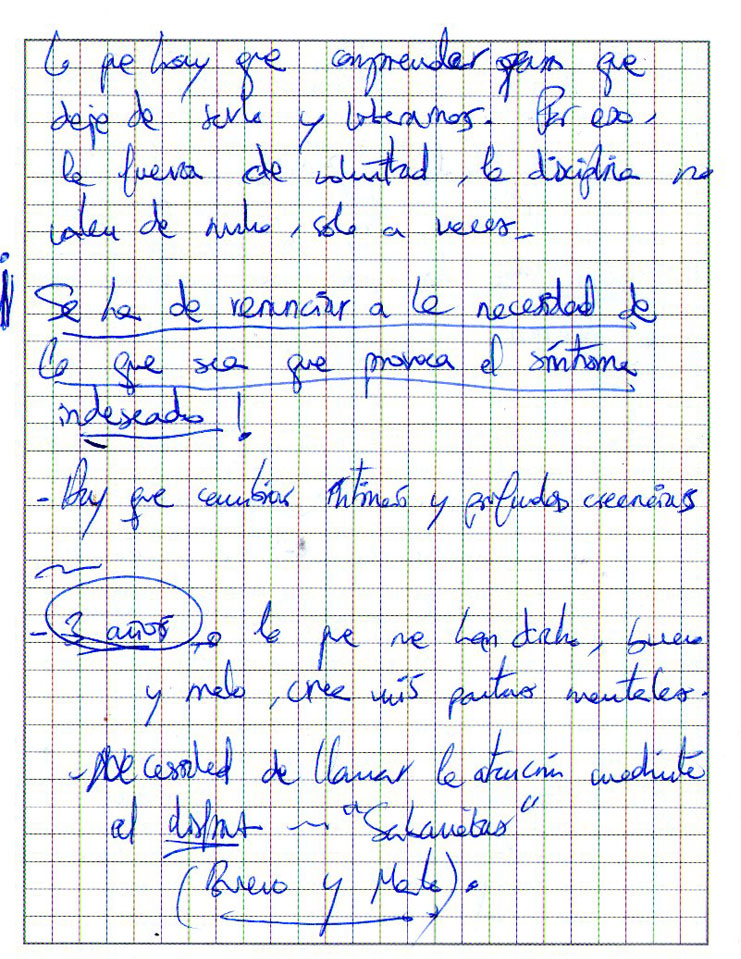 Lo que hay que comprender para que
deje de serlo y liberarnos. Por eso,
la fuerza de voluntad, la disciplina no
valen de mucho, solo a veces_
Se ha de renunciar a la necesidad de
lo que sea que provoca el síntoma
indeseado!
- Hay que cambiar íntimas y profundas creencias
- 3 años, lo que me han dicho, bueno
y malo, crea mis pautas mentales.
- Necesidad de llamar la atención mediante
el ~ "Sakanetas"
(Bueno y Malo).